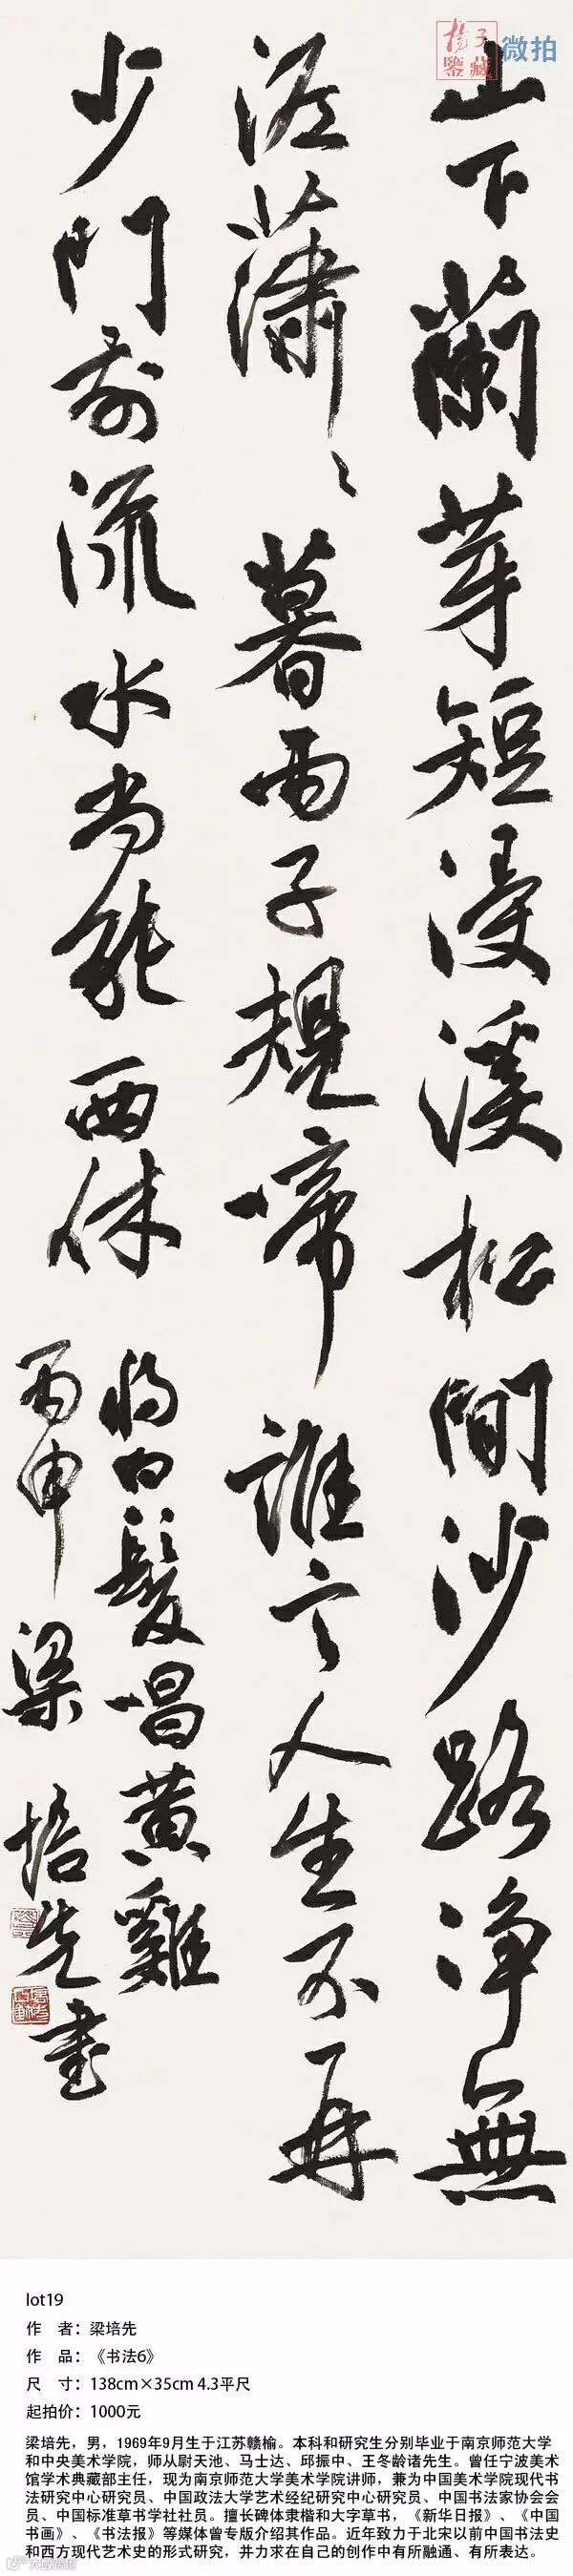 山下蘭芽短浸溪松間沙路淨無
泥蕭〻暮雨子規啼誰言人生不再
少門前流水尚能西休
將白髮唱黃雞
丙申 梁培先書
楊子鑒藏
微拍
lot19
作 者：梁培先
作 品：《书法6》
尺 寸：138cm×35cm 4.3平尺
起拍价：1000元
梁培先，男，1969年9月生于江苏赣榆。本科和研究生分别毕业于南京师范大学
和中央美术学院，师从尉天池、马士达、邱振中、王冬龄诸先生。曾任宁波美术
馆学术典藏部主任，现为南京师范大学美术学院讲师，兼为中国美术学院现代书
法研究中心研究员、中国政法大学艺术经纪研究中心研究员、中国书法家协会会
员、中国标准草书学社社员。擅长碑体隶楷和大字草书，《新华日报》、《中国
书画》、《书法报》等媒体曾专版介绍其作品。近年致力于北宋以前中国书法史
和西方现代艺术史的形式研究，并力求在自己的创作中有所融通、有所表达。